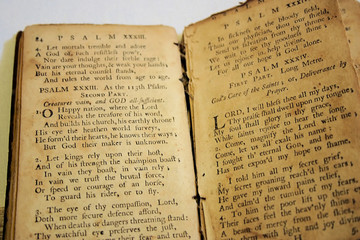 84 PSALM XXXIII.
4 Let mortals tremble and adore
A God of such resistless pow'r,
Nor dare indulge their feeble rage:
Vain are your thoughts, & weak your hands;
But his eternal counsel stands,
And rules the world from age to age.
PSALM XXXIII. As the 113th Psalm.
SECOND PART.
Creatures vain, and GOD all-sufficient.
1 O Happy nation, where the Lord
Reveals the treasure of his word,
And builds his church, his earthly throne!
His eye the heathen world surveys,
He form'd their hearts, he knows their ways;
But God their maker is unknown.
2 Let kings rely upon their host,
And of his strength the champion boast;
In vain they boast, in vain rely;
In vain we trust the brutal force,
Or speed or courage of an horse,
To guard his rider, or to fly.
3 The eye of thy compassion, Lord,
Doth more secure defence afford,
When deaths or dangers threat'ning stand:
Thy watchful eye preserves the
PSALM XXXIV.
4 In sickness or the bloody field,
Thou our physician, thou our shield,
Send us salvation from thy throne;
We wait to see thy goodness shine;
Let us rejoice in help divine,
For all our hope is God alone.
PSALM XXXIV.
FIRST PART. Long Metre.
God's Care of the Saints: or, Deliverance by
Prayer.
LORD, I will bless thee all my days,
Thy praise shall dwell upon my tongue;
My soul shall glory in thy grace,
While saints rejoice to hear the song.
Come, magnify the Lord with me;
Come, let us all exalt his name:
I sought th' eternal God, and he
Has not expos'd my hope to shame.
I told him all my secret grief,
My secret groaning reach'd his ears;
He gave my inward pains relief,
And calm'd the tumult of my fears.
4 To him the poor lift up their
Their faces feel the heav'nly shine;
with light and joy